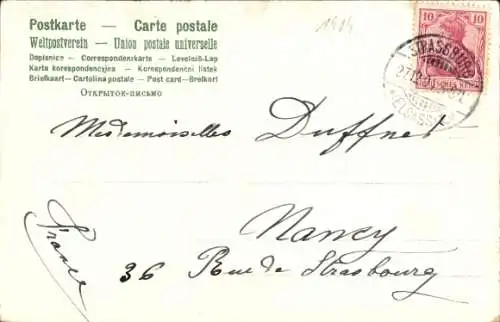 Postkarte — Carte postale
Weltpostverein — Union postale universelle
Dopisnice — Correspondenzkarte — Levelező-Lap
Karta korespondencyjna — Korespondenční lístek
Briefkaart — Cartolina postale — Post card — Brefkort
Открытое письмо
1904
10 10
STRASSBURG
(ELSASS)
Mademoiselles Duffner
Nancy
36 Rue de Strasbourg
France